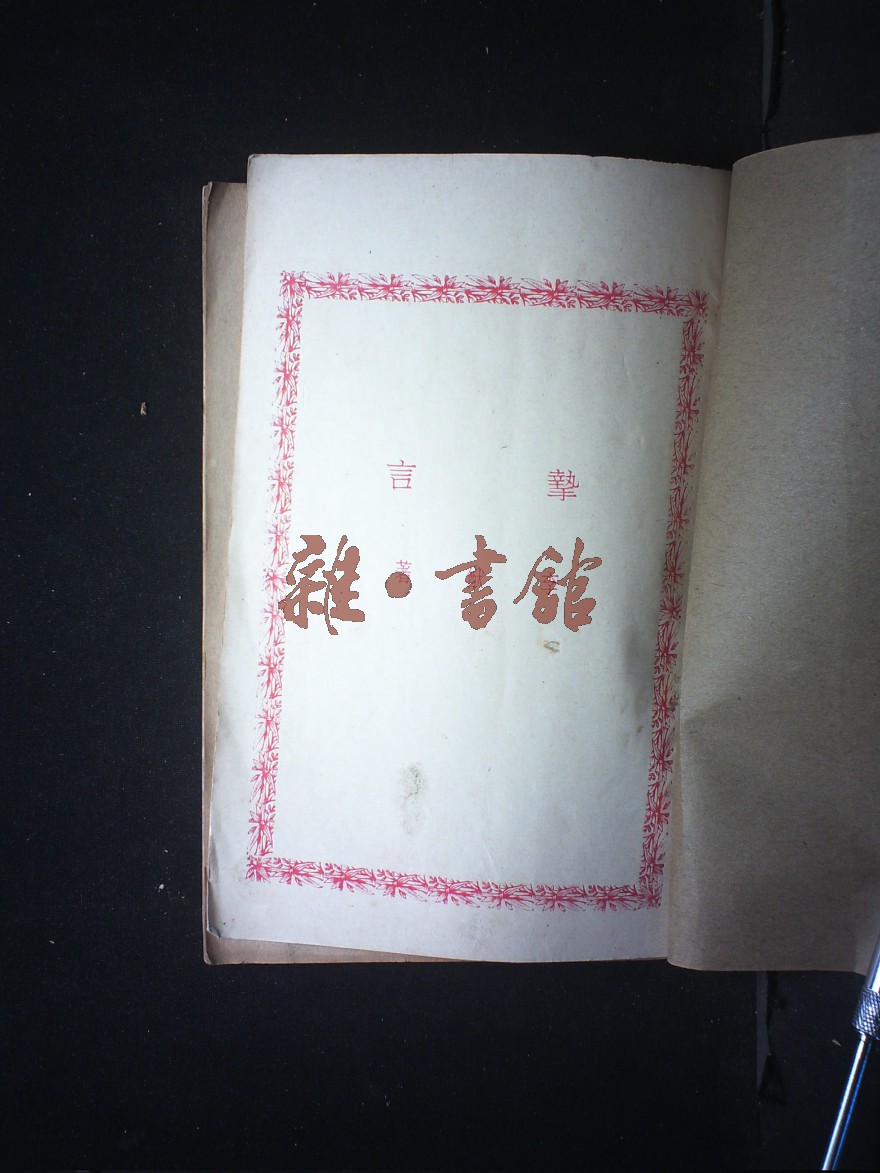 摯言
著
雜·書館